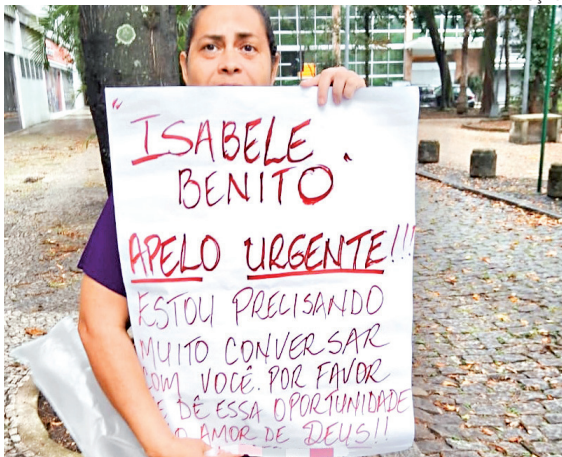 "ISABELE
BENITO"
APELO URGENTE!!!
ESTOU PRECISANDO
MUITO CONVERSAR
COM VOCÊ. POR FAVOR
DÊ ESSA OPORTUNIDADE
AMOR DE DEUS!!